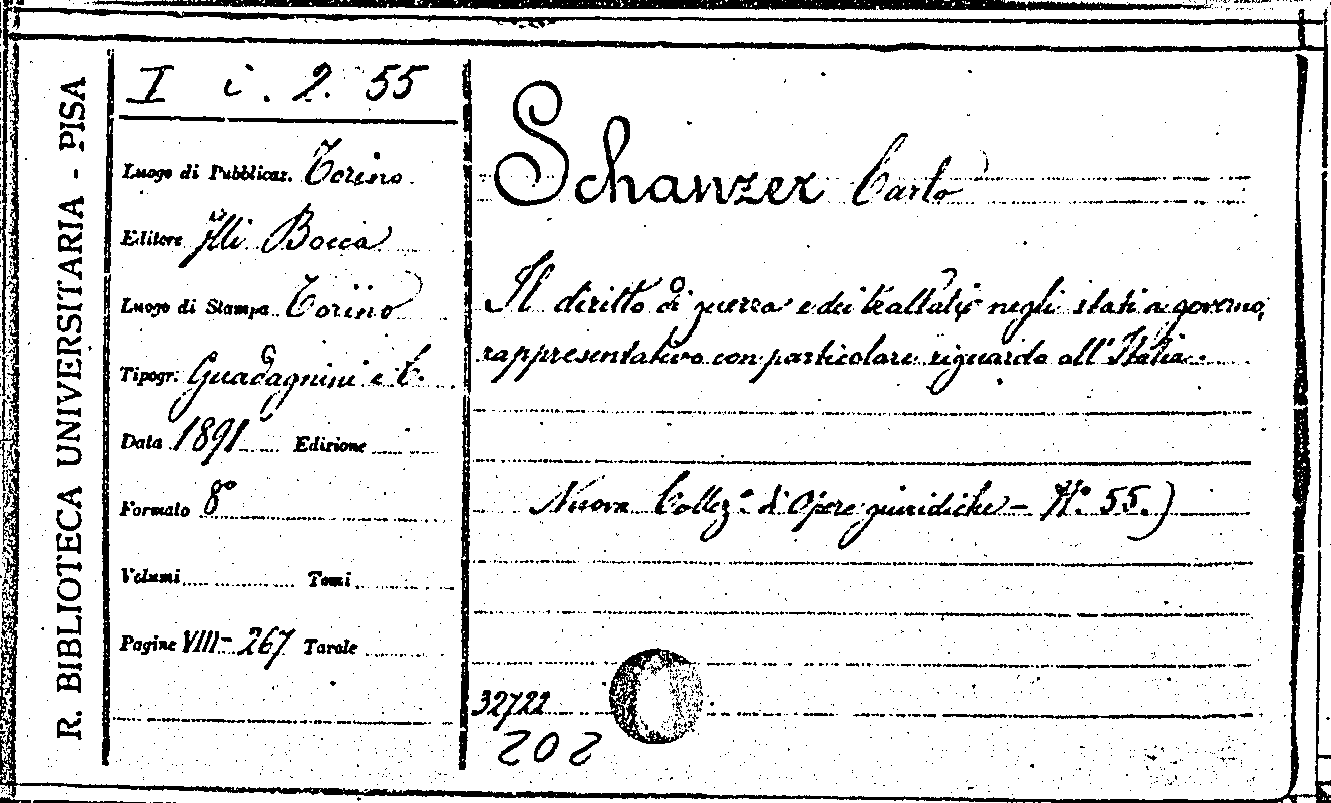 R. BIBLIOTECA UNIVERSITARIA - PISA
I i. 2. 55
Luogo di Pubblicaz. Torino
Editore F.lli Bocca
Luogo di Stampa Torino
Tipogr. Guadagnini e C.
Data 1891 Edizione
Formato 8°
Volumi Tomi
Pagine VIII-267 Tavole
Schanzer Carlo
Il diritto di guerra e dei trattati negli stati a governo
rappresentativo con particolare riguardo all'Italia.
Nuova Collez.e di Opere giuridiche - N.° 55.)
32722
202